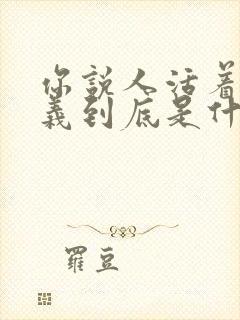 你說人活着
義到底是什
羅豆